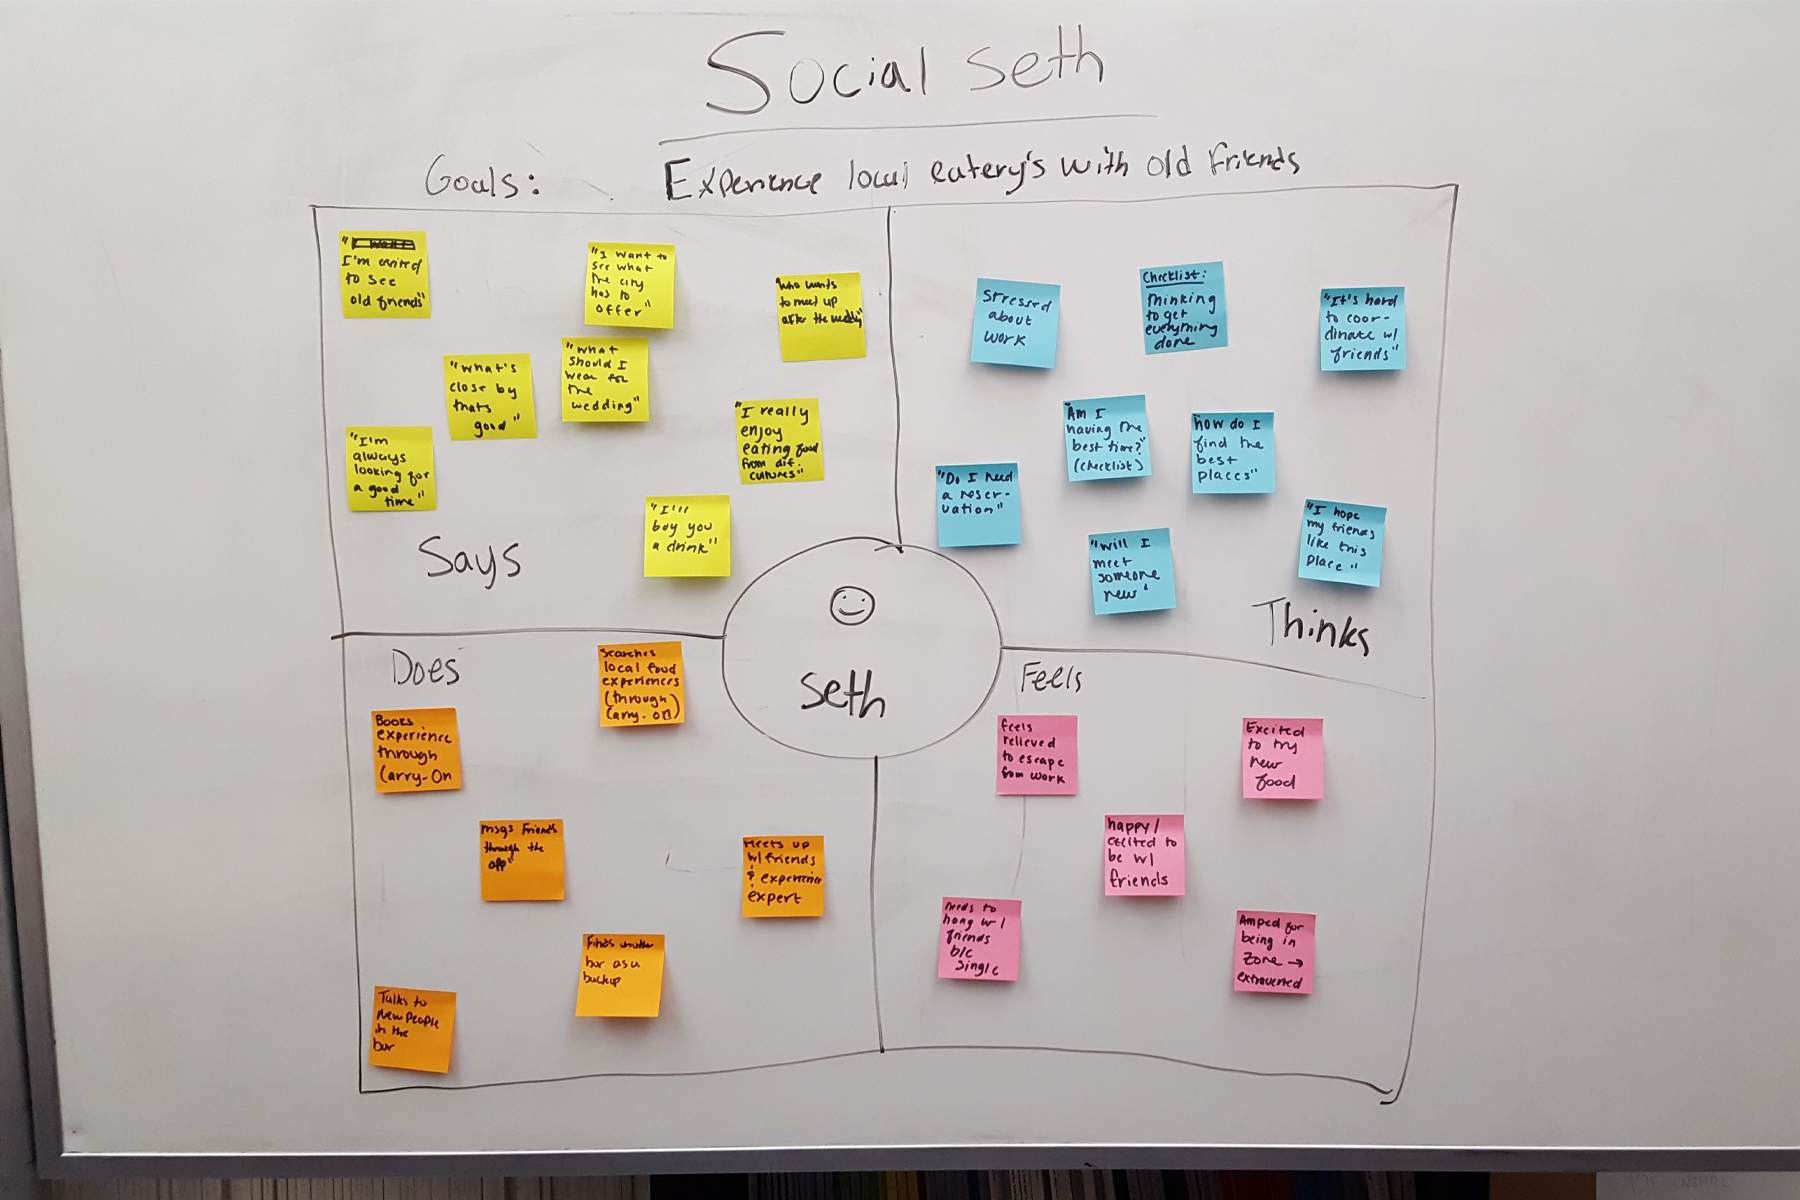 Social Seth
Goals: Experience local eatery's with old friends
"
I'm excited
to see
old friends"
"I want to
see what
the city
has to
offer"
who wants
to meet up
after the wedding"
"what's
close by
thats
good"
"what
should I
wear for
the
wedding"
"I really
enjoy
eating food
from dif.
cultures"
"I'm
always
looking for
a good
time"
"I'll
buy you
a drink"
Says
Stressed
about
work
Checklist:
thinking
to get
everything
done
"It's hard
to coor-
dinate w/
friends"
"Am I
having the
best time?"
(checklist)
"how do I
find the
best
places"
"Do I need
a reser-
vation"
"will I
meet
someone
new"
"I hope
my friends
like this
place"
Thinks
Seth
Does
Searches
local food
experiences
(through)
Carry-on)
Books
experience
through
Carry-On
msgs Friends
through the
app"
Meets up
w/ friends
& experience
expert
Finds another
bar as a
backup
Talks to
New People
in the
bar
Feels
feels
relieved
to escape
from work
Excited
to try
new
food
happy/
excited to
be w/
friends
needs to
hang w/
friends
b/c
single
Amped for
being in
zone →
extroverted